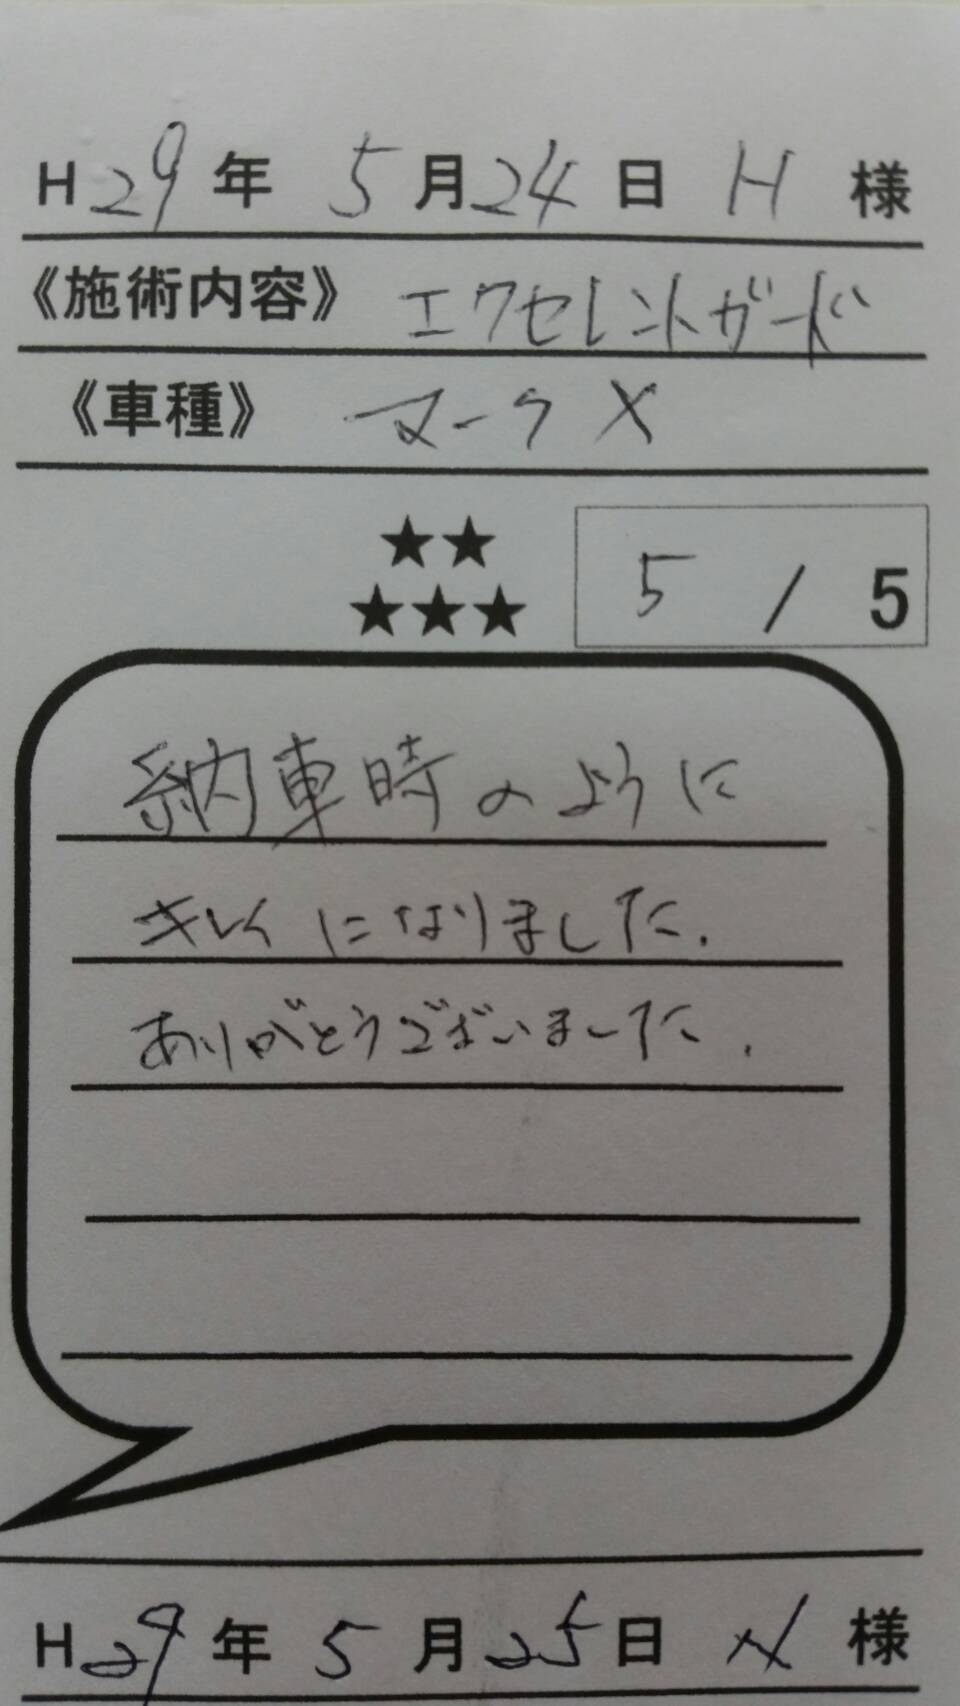 H29年 5月24日 H 様
《施術内容》 エクセレントガード
《車種》 マークX
★★
★★★ 5 / 5
納車時のように
キレイになりました.
ありがとうございました.
H29年 5月25日 N 様